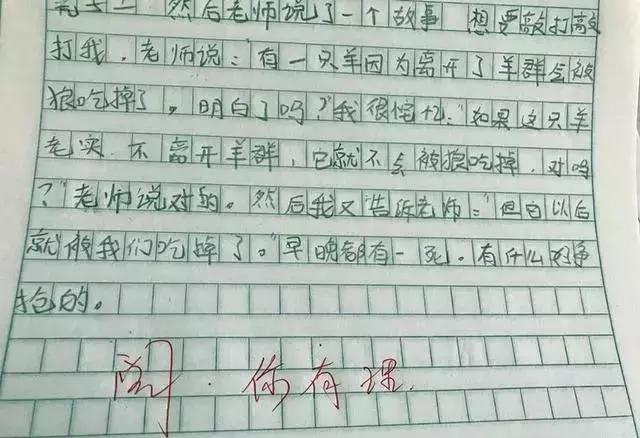 然后老师说了一个故事 想要敲打敲
打我，老师说："有一只羊因为离开了羊群会被
狼吃掉了，明白了吗？"我很："如果这只羊
老实 不离开羊群，它就不会被狼吃掉，对吗
？"老师说对的。然后我又告诉老师："但它以后
就被我们吃掉了。"早晚都有一死。有什么好争
抢的。
阅 你有理.